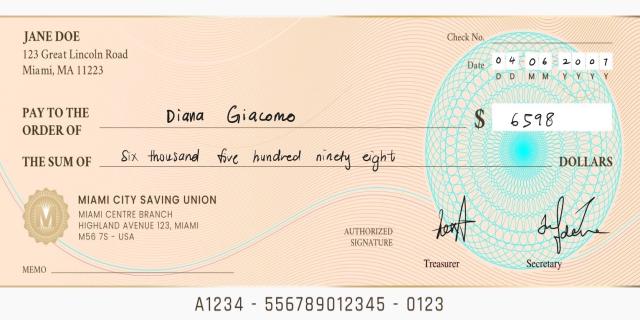 JANE DOE
123 Great Lincoln Road
Miami, MA 11223
Check No.
Date 04 06 2007
D D M M Y Y Y Y
PAY TO THE
ORDER OF Diana Giacomo
$ 6598
THE SUM OF Six thousand five hundred ninety eight DOLLARS
M
MIAMI CITY SAVING UNION
MIAMI CENTRE BRANCH
HIGHLAND AVENUE 123, MIAMI
M56 7S - USA
AUTHORIZED
SIGNATURE
Treasurer
Secretary
MEMO
A1234 - 556789012345 - 0123